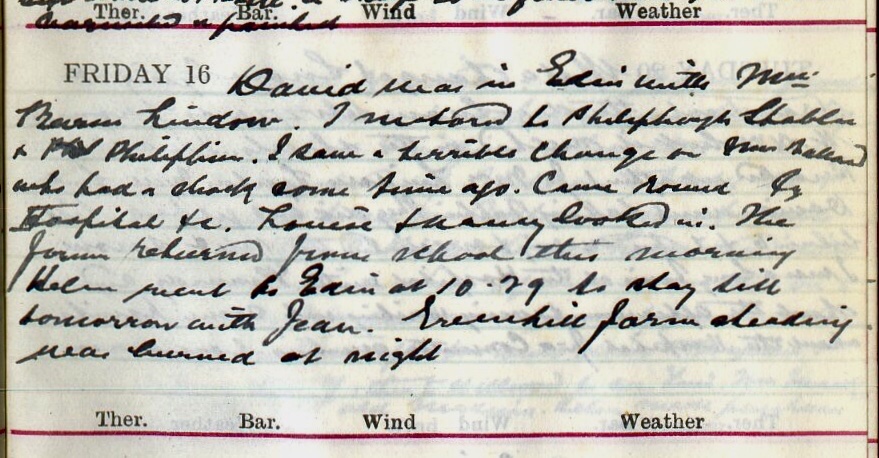 Ther. Bar. Wind Weather
varnished & painted
FRIDAY 16 David was in Edin with Mrs
Burns Lindow. I motored to Philiphaugh Stables
& Philiphaugh. I saw a terrible change on Mrs
who had a shock some time ago. Came round by
Hospital &c. Louise & Nancy looked in. The
former returned from school this morning
Helen went to Edin at 10.29 to stay till
tomorrow with Jean. Greenhill farm steading
was burned at night
Ther. Bar. Wind Weather